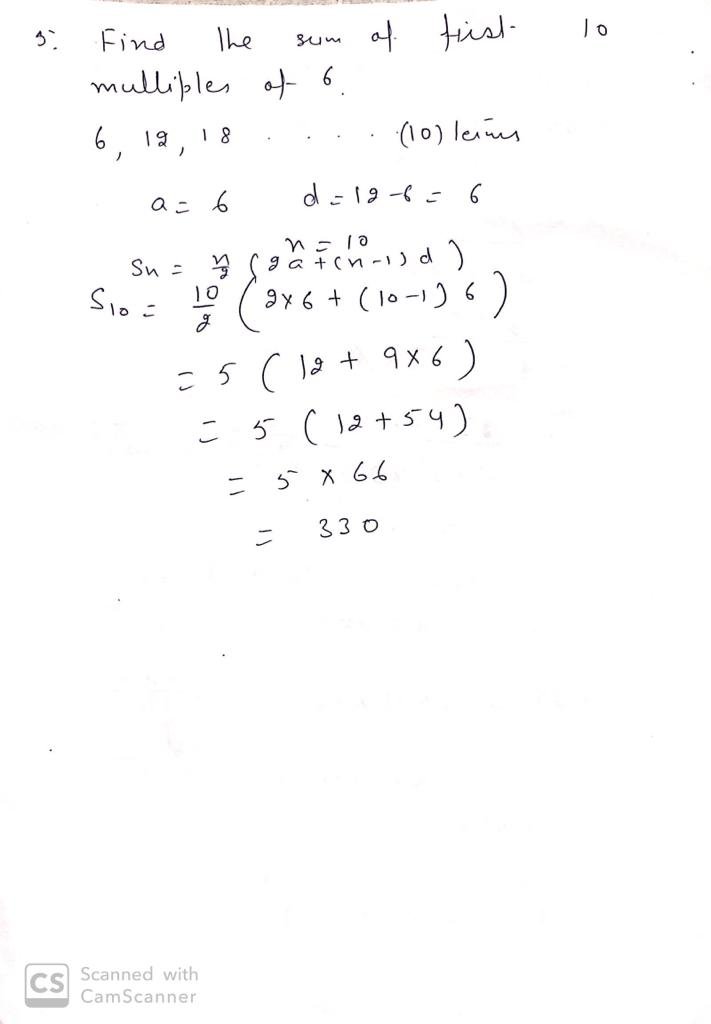 5. Find the sum of first 10
multiples of 6.
6, 12, 18 . . . . (10) terms
a = 6 d = 12 - 6 = 6
n = 10
Sn = n/2 (2a + (n-1) d)
S10 = 10/2 (2 x 6 + (10-1) 6)
= 5 (12 + 9 x 6)
= 5 (12 + 54)
= 5 x 66
= 330
CS Scanned with
CamScanner